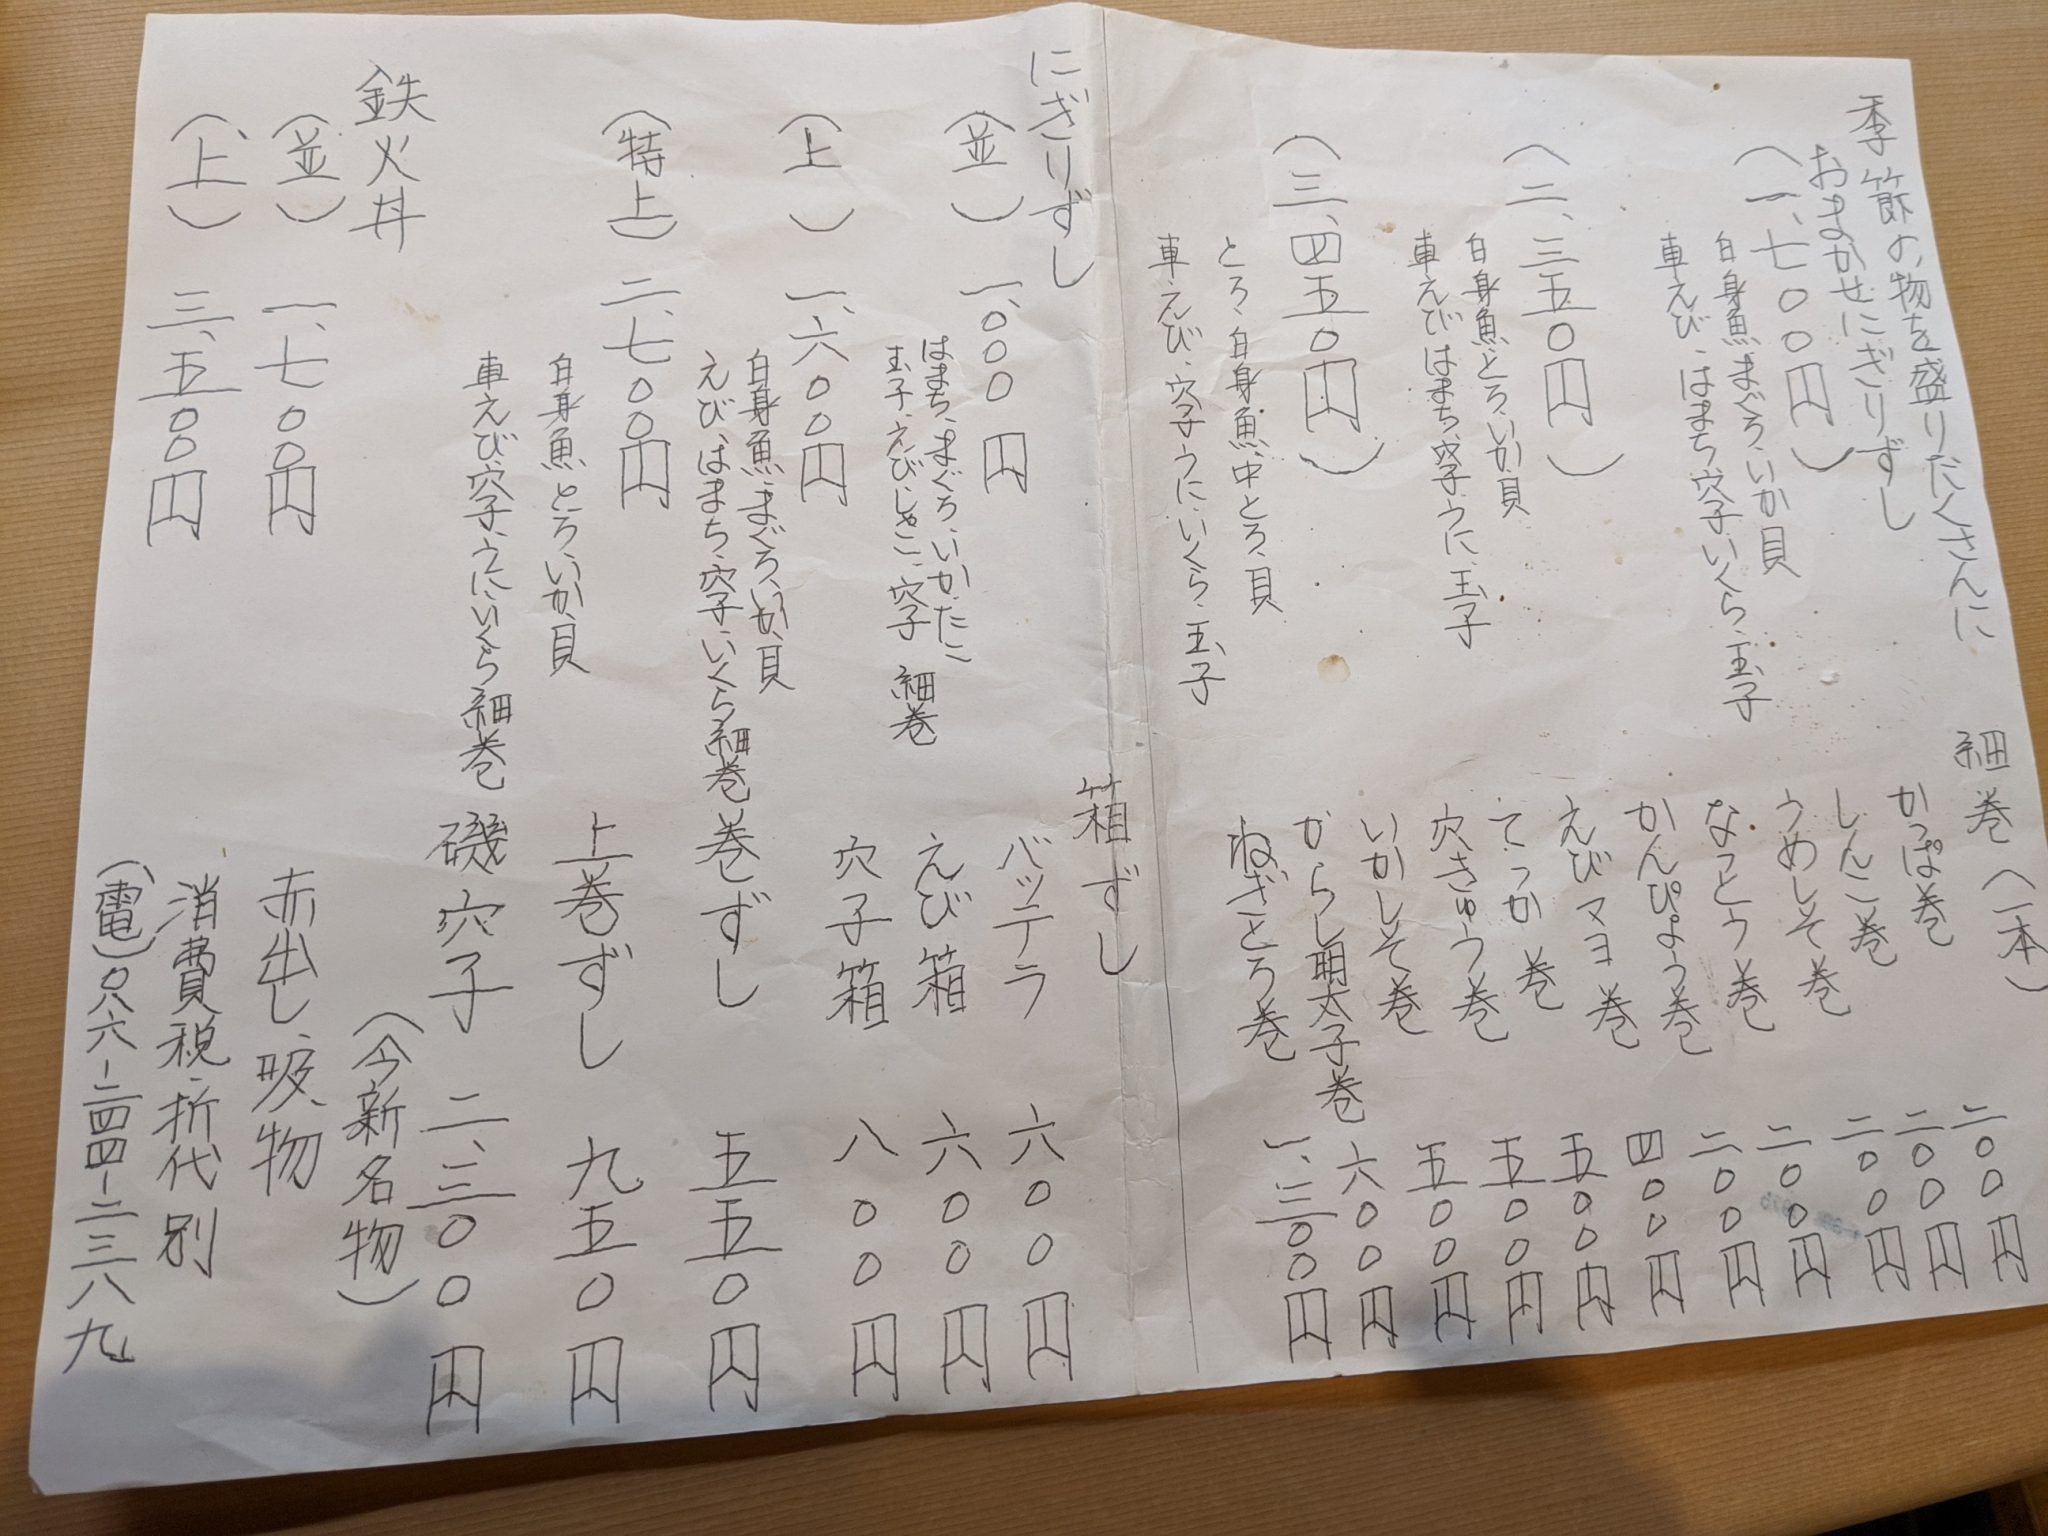 季節の物を盛りだくさんに
おまかせにぎりずし
（一、七〇〇円）
白身魚、まぐろ、いか、貝
車えび、はまち、穴子、いくら、玉子
（二、三五〇円）
白身魚、とろ、いか、貝
車えび、はまち、穴子、うに、玉子
（三、四五〇円）
とろ、白身魚、中とろ、貝
車えび、穴子、うに、いくら、玉子
細巻（一本）
かっぱ巻 二〇〇円
しんこ巻 二〇〇円
うめしそ巻 二〇〇円
なっとう巻 二〇〇円
かんぴょう巻 二〇〇円
えびマヨ巻 四〇〇円
てっか巻 五〇〇円
穴きゅう巻 五〇〇円
いかしそ巻 五〇〇円
からし明太子巻 六〇〇円
ねぎとろ巻 一、三〇〇円
にぎりずし
（並） 一、〇〇〇円
はまち、まぐろ、いか、たこ
玉子、えび、しゃこ、穴子 細巻
（上） 一、六〇〇円
白身魚、まぐろ、いか、貝
えび、はまち、穴子、いくら 細巻
（特上） 二、七〇〇円
白身魚、とろ、いか、貝
車えび、穴子、うに、いくら 細巻
鉄火丼
（並） 一、七〇〇円
（上） 三、五〇〇円
箱ずし
バッテラ 六〇〇円
えび箱 六〇〇円
穴子箱 八〇〇円
巻ずし 五五〇円
上巻ずし 九五〇円
磯穴子 二、三〇〇円
（今新名物）
赤出し、吸物
消費税・折代別
（電）〇八六-二四四-二三八九